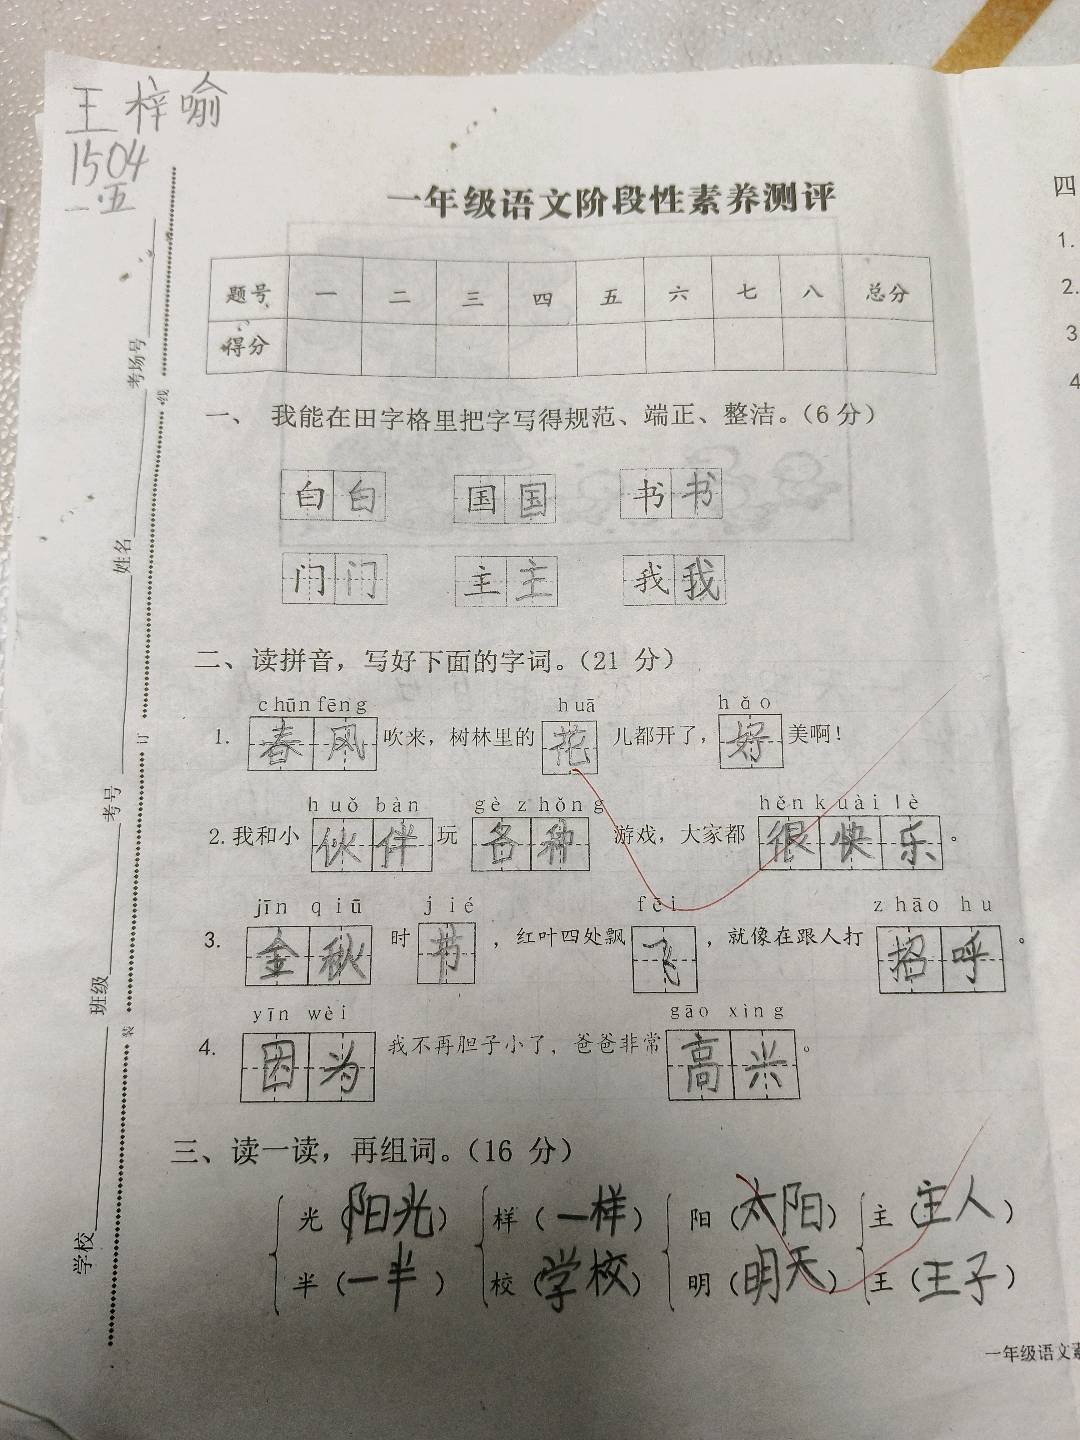 王梓喻
1504
一.五
一年级语文阶段性素养测评
题号 一 二 三 四 五 六 七 八 总分
得分
一、 我能在田字格里把字写得规范、端正、整洁。（6分）
白 白 国 国 书 书
门 门 主 主 我 我
二、读拼音，写好下面的字词。（21 分）
chūn fēng huā hǎo
1. 春风 吹来，树林里的 花 儿都开了， 好 美啊！
huǒ bàn gè zhǒng hěn kuài lè
2. 我和小 伙伴 玩 各种 游戏，大家都 很快乐 。
jīn qiū jié fēi zhāo hu
3. 金秋 时 节 ，红叶四处飘 飞 ，就像在跟人打 招呼 。
yīn wèi gāo xìng
4. 因为 我不再胆子小了，爸爸非常 高兴 。
三、读一读，再组词。（16 分）
光（阳光） 样（一样） 阳（太阳） 主（主人）
半（一半） 校（学校） 明（明天） 王（王子）
学校 班级 考号 姓名 考场号
装 订 线
四
1.
2.
3
4
一年级语文素